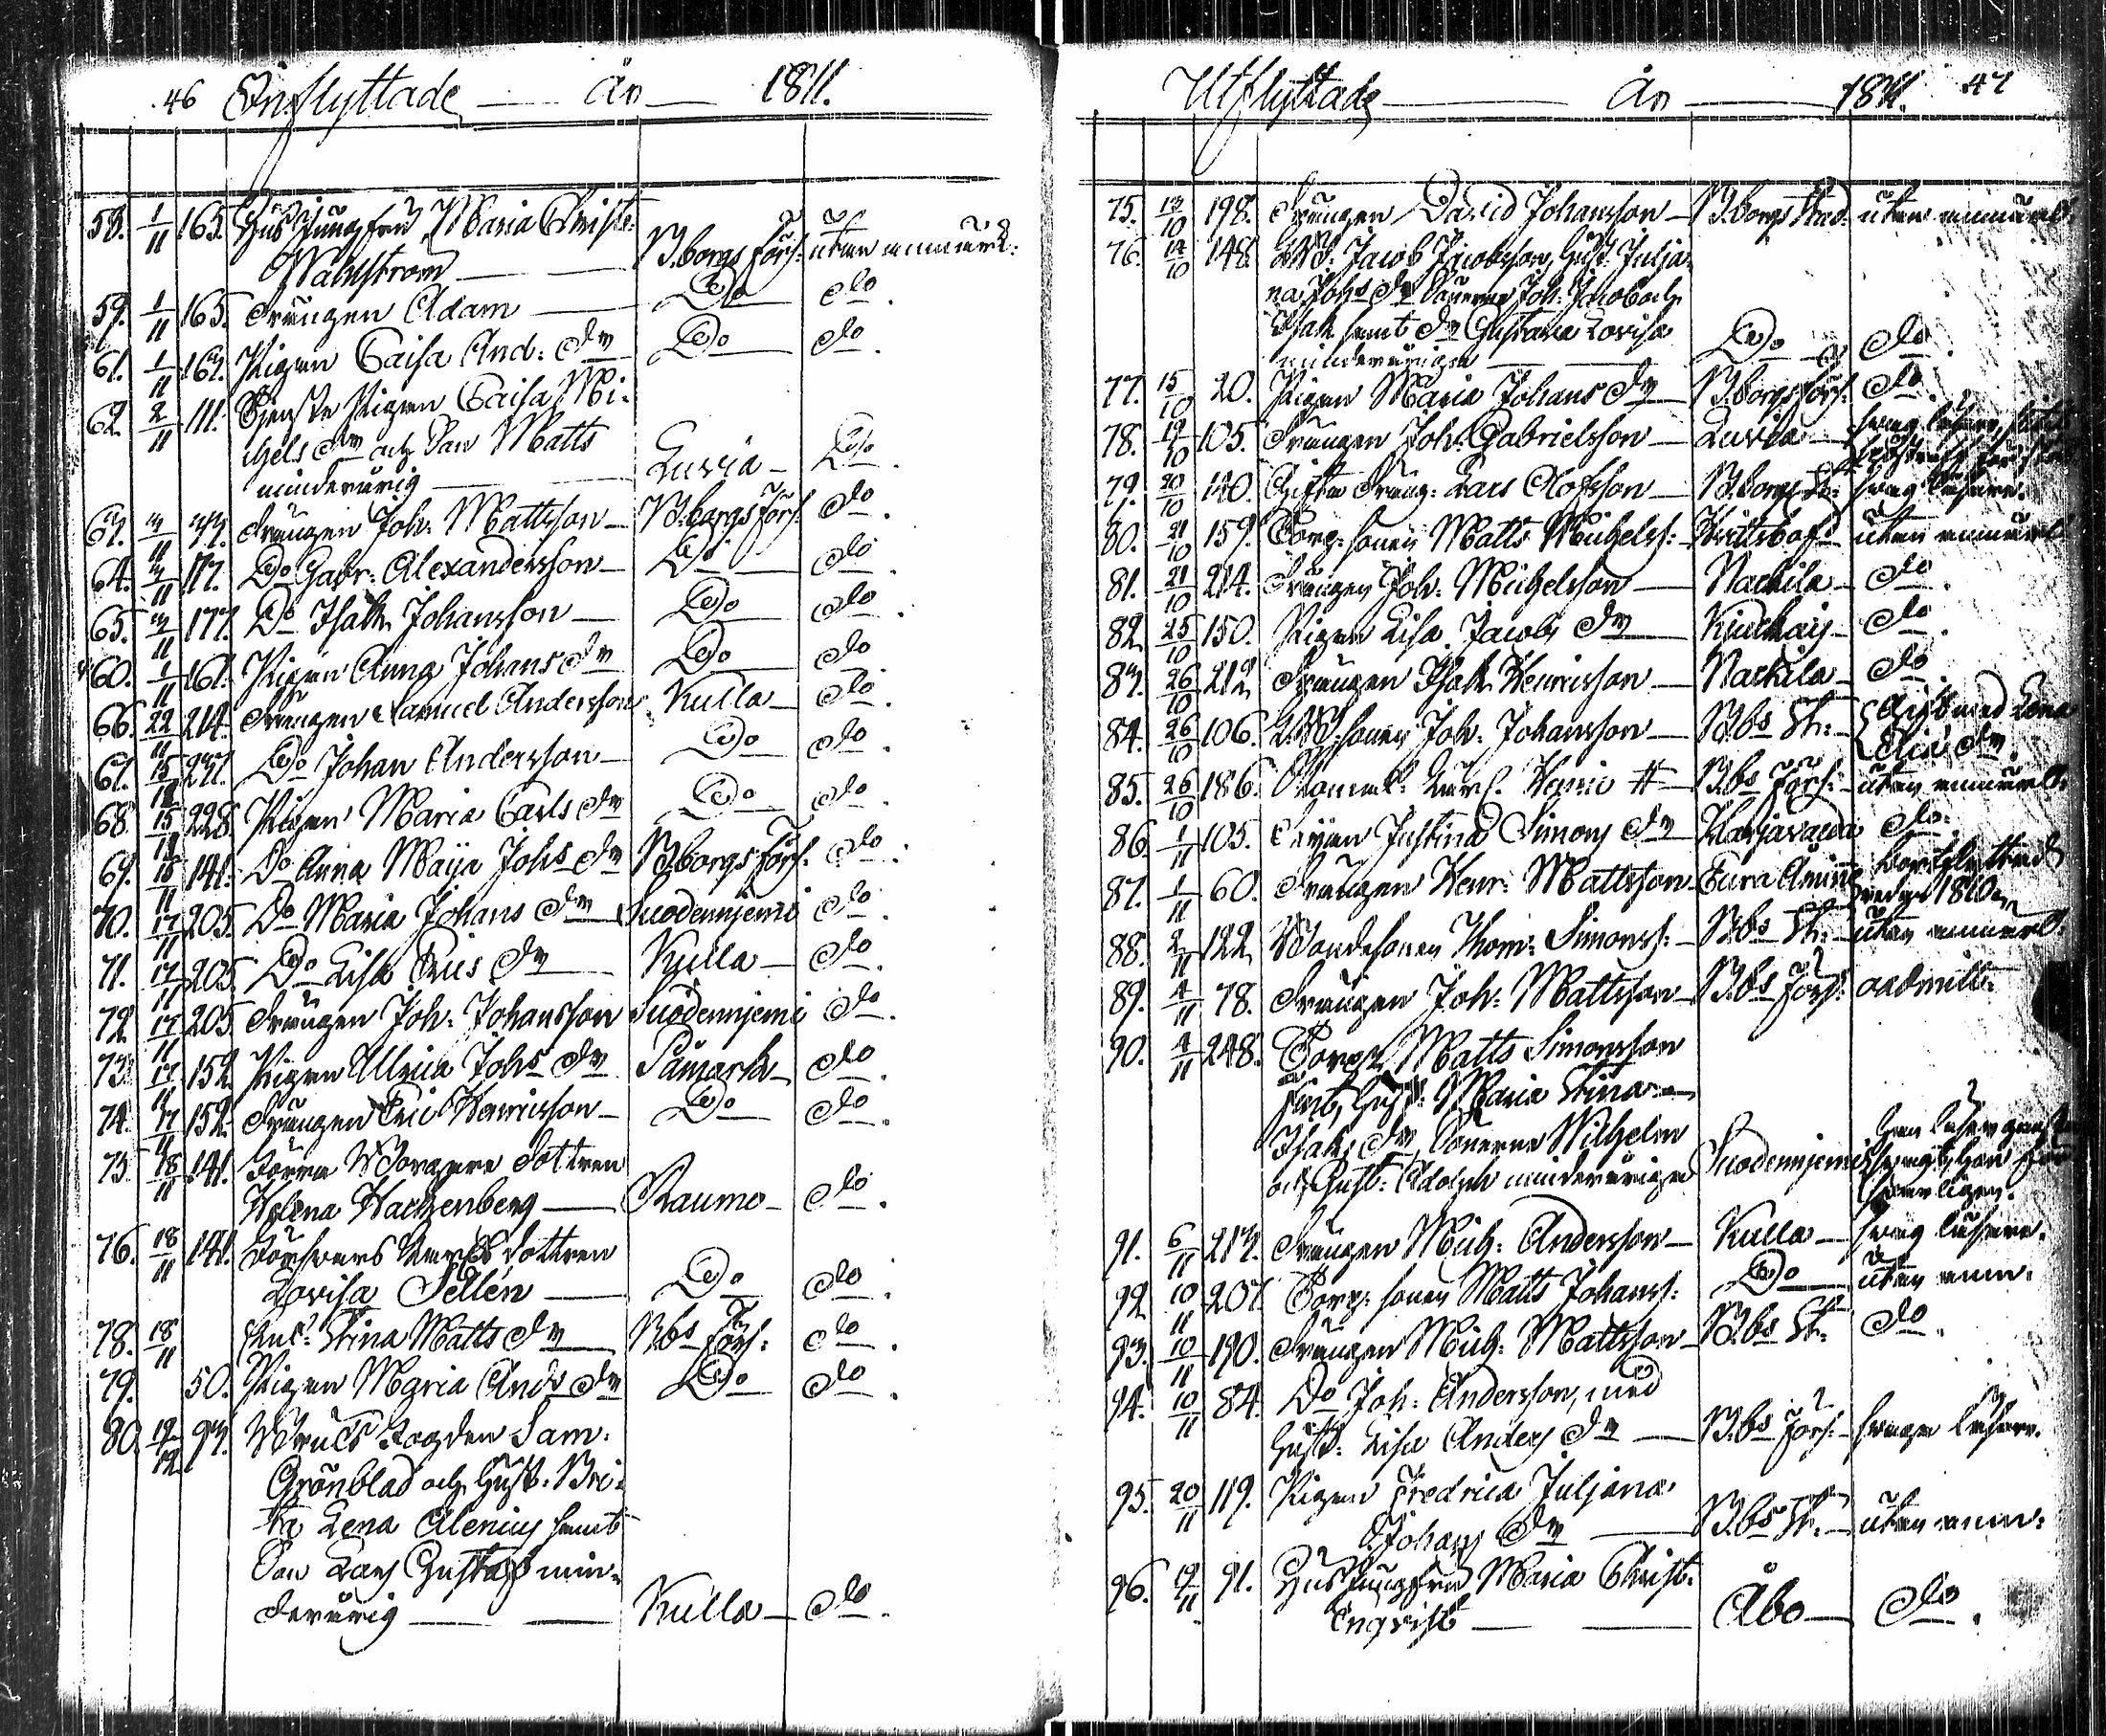 46 Inflyttade År 1811.
58. 1/11 165. Husjungfru Maria Christ:
Wahlström B:borgs förs: utan anmärk:
59. 1/11 165. Drängen Adam Do do.
61. 1/11 162. Pigan Caisa And: dr Do do.
62. 2/11 111. Tjenste Pigan Caisa Mi:
chels dr och Son Matts
minderårig Luvia Do.
63. 3/11 Drängen Joh: Mattsson B:borgs förs: do.
64. 3/11 117. Do Gabr: Alexandersson Do do.
65. 3/11 177. Do Isak Johansson Do do.
60. 1/11 161. Pigan Anna Johans dr Do do.
66. 22/11 214. Drängen Samuel Andersson Kulla do.
67. 15/11 Do Johan Andersson Do do.
68. 15/11 228. Pigan Maria Carls dr Do do.
69. 15/11 141. Do Anna Maija Johs dr B:borgs förs: do.
70. 17/11 205. Do Maria Johans dr Suodennjemi do.
71. 17/11 205. Do Lisa Eriks dr Kulla do.
72. 17/11 205. Drängen Joh: Johansson Suodennjemi do.
73. 17/11 152. Pigan Ulrica Johs dr Påmark do.
74. 17/11 152. Drängen Eric Henricsson Do do.
75. 18/11 141. Förra Borgare dottren
Helena Hachzenberg Raumo do.
76. 18/11 141. dottren
Lovisa Sellén Do do.
78. 18/11 Enk: Stina Matts dr B:bs förs: do.
79. 50. Pigan Maria Ands dr Do do.
80. 12/12 93. Bruks Fogden Sam:
Grönblad och Hust: Bri:
ta Lena Alenius samt
Son Lars Gustaf min:
derårig Kulla do.
Utflyttade År 1811. 47
75. 13/10 198. Drängen David Johansson B:borgs Stad: utan anmärk:
76. 14/10 148. Jacob Jacobsson, Hust: Julja:
na Johs dr Sönerne Joh: Jacob och
Isak samt dr Gustava Lovisa
minderåriga Do do.
77. 15/10 20. Pigan Maria Johans dr B:borgs förs: do.
78. 19/10 105. Drängen Joh: Gabrielsson Luvia svag läsare,
79. 20/10 140. Gifta Dräng: Lars Olofsson B:borgs St: svag läsare.
80. 21/10 159. Torp: sonen Matts Michelss: utan anmärk:
81. 21/10 214. Drängen Joh: Michelsson Nackila do.
82. 25/10 150. Pigan Lisa Jacobs dr do.
83. 26/10 212. Drängen Isak Henricsson Nackila do.
84. 26/10 106. sonen Joh: Johansson B:bs St: Gift med Lena
dr.
85. 26/10 186. Henric B:bs förs: utan anmärk:
86. 1/11 105. Pigan Justina Simons dr Harjavalda do.
87. 1/11 60. Drängen Henr: Mattsson Eura Åminne bortflyttad
redan 1810.
88. 2/11 122. Bondesonen Thom: Simonss: B:bs St: utan anmärk:
89. 4/11 78. Drängen Joh: Mattsson B:bs förs: oadmitt:
90. 4/11 248. Torp: Matts Simonsson
samt Hust: Maria Stina
Isaks dr, Sönerne Wilhelm
och Gust: Adolph minderåriga Suodennjemi
91. 6/11 213. Drängen Mich: Andersson Kulla svag läsare.
92. 10/11 207. Torp: sonen Matts Johanss: Do utan anm:
93. 10/11 190. Drängen Mich: Mattsson B:bs St: do.
94. 10/11 84. Do Joh: Andersson, med
Hust: Lisa Anders dr B:bs förs: svaga läsare.
95. 20/11 119. Pigan Fredrica Juljana
Johans dr B:bs St: utan anm:
96. 19/11 91. Husjungfru Maria Christ:
Enqvist Åbo do.